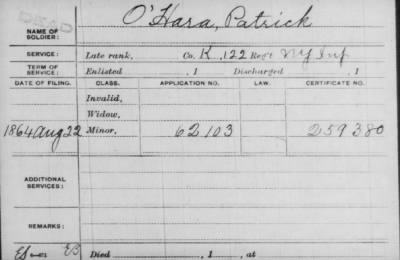 DEAD
NAME OF SOLDIER: O'Hara, Patrick
SERVICE: Late rank, Co. K, 122 Reg't NY Inf
TERM OF SERVICE: Enlisted , 1 Discharged , 1
DATE OF FILING. CLASS. APPLICATION NO. LAW. CERTIFICATE NO.
Invalid,
Widow,
1864 Aug 22 Minor, 62103 259380
ADDITIONAL SERVICES:
REMARKS:
Died , 1 , at